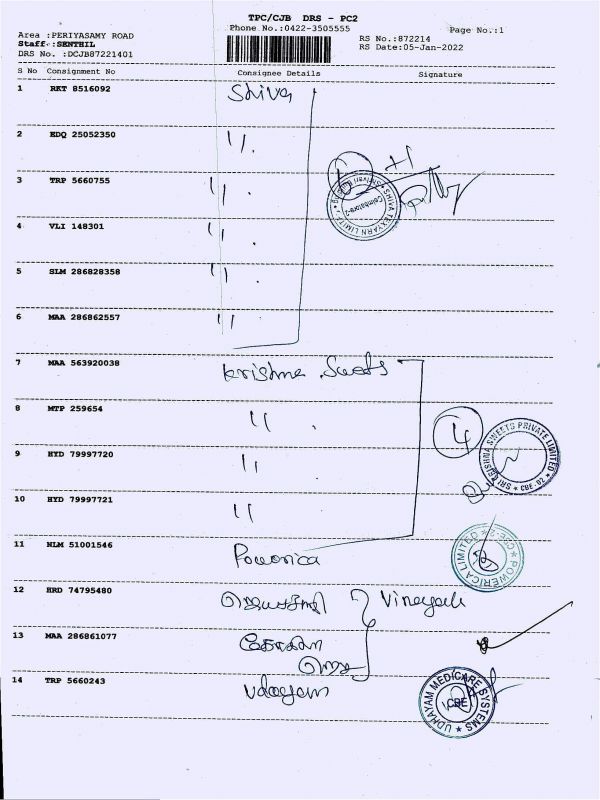 TPC/CJB DRS - PC2
Phone No.:0422-3505555
Page No.:1
Area :PERIYASAMY ROAD
Staff :SENTHIL
DRS No. :DCJB87221401
RS No.:872214
RS Date:05-Jan-2022
S No Consignment No Consignee Details Signature
1 RKT 8516092 Shiva
2 EDQ 25052350 "
3 TRP 5660755 "
4 VLI 148301 "
5 SLM 286828358 "
6 MAA 286862557 "
6 +1
SHIVA TEXYARN LIMITED
Coimbatore
7 MAA 563920038 Krishna Sweets
8 MTP 259654 "
9 HYD 79997720 "
10 HYD 79997721 "
4
SRI KRISHNA SWEETS PRIVATE LIMITED
CBE-02
11 NLM 51001546 Powerica
POWERICA LIMITED
12 HRD 74795480 Vinayak
13 MAA 286861077
14 TRP 5660243 Udayam
UDHAYAM MEDICARE SYSTEMS
CBE